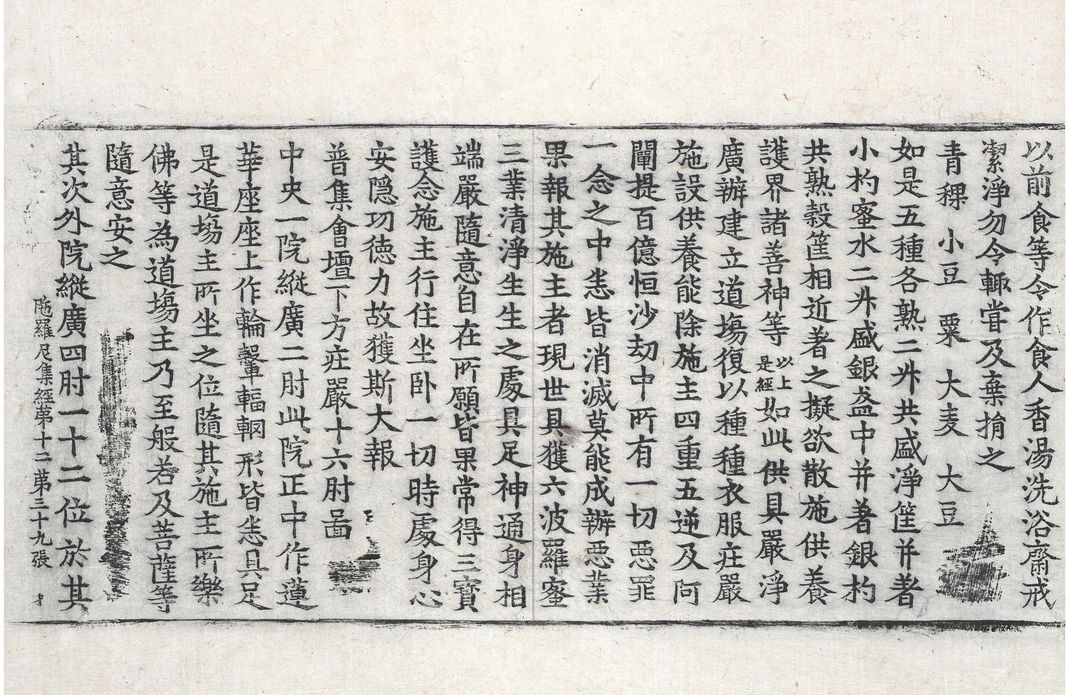 以前食等令作食人香湯洗浴齋戒
潔淨勿令輙甞及棄捐之
青稞　小豆　粟　大麦　大豆
如是五種各熟二升共盛淨筐并著
小杓蜜水二升盛銀盆中并著銀杓
共熟穀筐相近著之擬欲散施供養
護界諸善神等以上是經如此供具嚴淨
廣辦建立道場復以種種衣服莊嚴
施設供養能除施主四重五逆及阿
闡提百億恒沙劫中所有一切惡罪
一念之中悉皆消滅莫能成辦惡業
果報其施主者現世具獲六波羅蜜
三業清淨生生之處具足神通身相
端嚴隨意自在所願皆果常得三寳
護念施主行住坐卧一切時處身心
安隱功德力故獲斯大報
普集會壇下方莊嚴十六肘啚
中央一院縱廣二肘此院正中作蓮
華座座上作輪轝輻輞形皆悉具足
是道場主所坐之位隨其施主所樂
佛等為道場主乃至般若及菩薩等
隨意安之
其次外院縱廣四肘一十二位於其
陁羅尼集經第十二　第三十九張